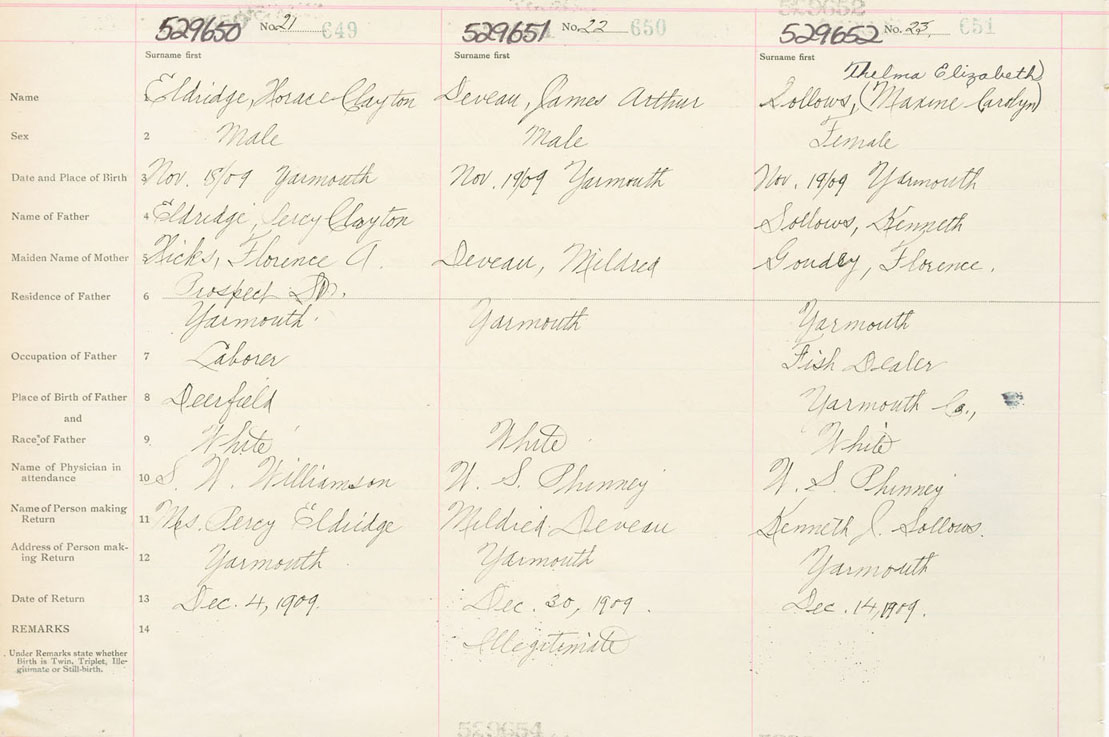 529652
529650 No. 21 649 529651 No. 22 650 529652 No. 23. 651
Surname first Surname first Surname first
Thelma Elizabeth)
Name 1 Eldridge, Horace Clayton Deveau, James Arthur Sollows, (Maxine Carolyn)
Sex 2 Male Male Female
Date and Place of Birth 3 Nov. 18/09 Yarmouth Nov. 19/09 Yarmouth Nov. 19/09 Yarmouth
Name of Father 4 Eldridge, Percy Clayton Sollows, Kenneth
Maiden Name of Mother 5 Hicks, Florence A. Deveau, Mildred Goudey, Florence.
Residence of Father 6 Prospect St.
Yarmouth. Yarmouth Yarmouth
Occupation of Father 7 Laborer Fish Dealer
Place of Birth of Father 8 Deerfield Yarmouth Co.,
and
Race of Father 9 White White White
Name of Physician in
attendance 10 S. W. Williamson W. S. Phinney W. S. Phinney
Name of Person making
Return 11 Mrs. Percy Eldridge Mildred Deveau Kenneth J. Sollows.
Address of Person mak-
ing Return 12 Yarmouth Yarmouth Yarmouth
Date of Return 13 Dec. 4, 1909. Dec. 30, 1909. Dec. 14, 1909.
REMARKS 14 Illegitimate
Under Remarks state whether
Birth is Twin, Triplet, Ille-
gitimate or Still-birth.
529654